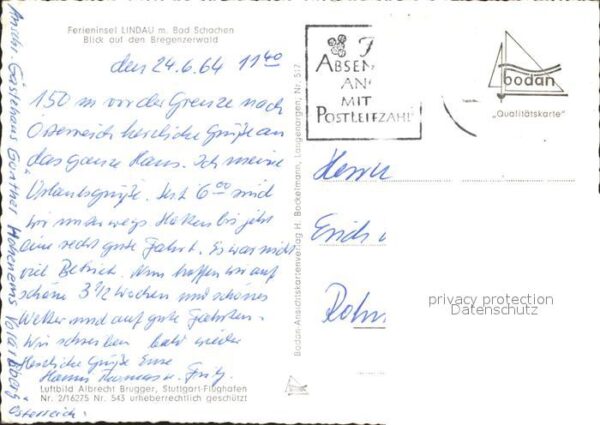 Ferieninsel LINDAU m. Bad Schachen
Blick auf den Bregenzerwald
den 24.6.64 11 40
150 m vor der Grenze nach
Österreich herzliche Grüße an
das ganze Haus. Ich meine
Urlaubsgrüße. Seit 6 00 sind
wir unterwegs Hatten bis jetzt
eine recht gute Fahrt. Es war nicht
viel Betrieb. Nun hoffen wir auf
schöne 3 1/2 Wochen und schönes
Wetter und auf gute Fahrten.
Wir schreiben bald wieder
Herzliche Grüße Eure
Hanni Thomas u. Fritz
Luftbild Albrecht Brugger, Stuttgart-Flughafen
Nr. 2/16275 Nr. 543 urheberrechtlich geschützt
Anschr. Gästehaus Günther Hohenems Vorarlberg
Österreich
Bodan-Ansichtskartenverlag H. Bockelmann, Langenargen, Nr. 517
ABSEN
AN
MIT
POSTLEITZAHL
bodan
„Qualitätskarte"
Herrn
Erich
Rohr
privacy protection
Datenschutz